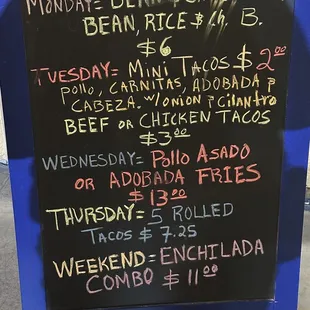 MONDAY=
BEAN, RICE $ 1/2 B.
$6
TUESDAY= MINI TACOS $2.00
POLLO, CARNITAS, ADOBADA &
CABEZA. W/ONION & CILANTRO
BEEF OR CHICKEN TACOS
$3.00
WEDNESDAY= POLLO ASADO
OR ADOBADA FRIES
$13.00
THURSDAY= 5 ROLLED
TACOS $7.25
WEEKEND= ENCHILADA
COMBO $11.00